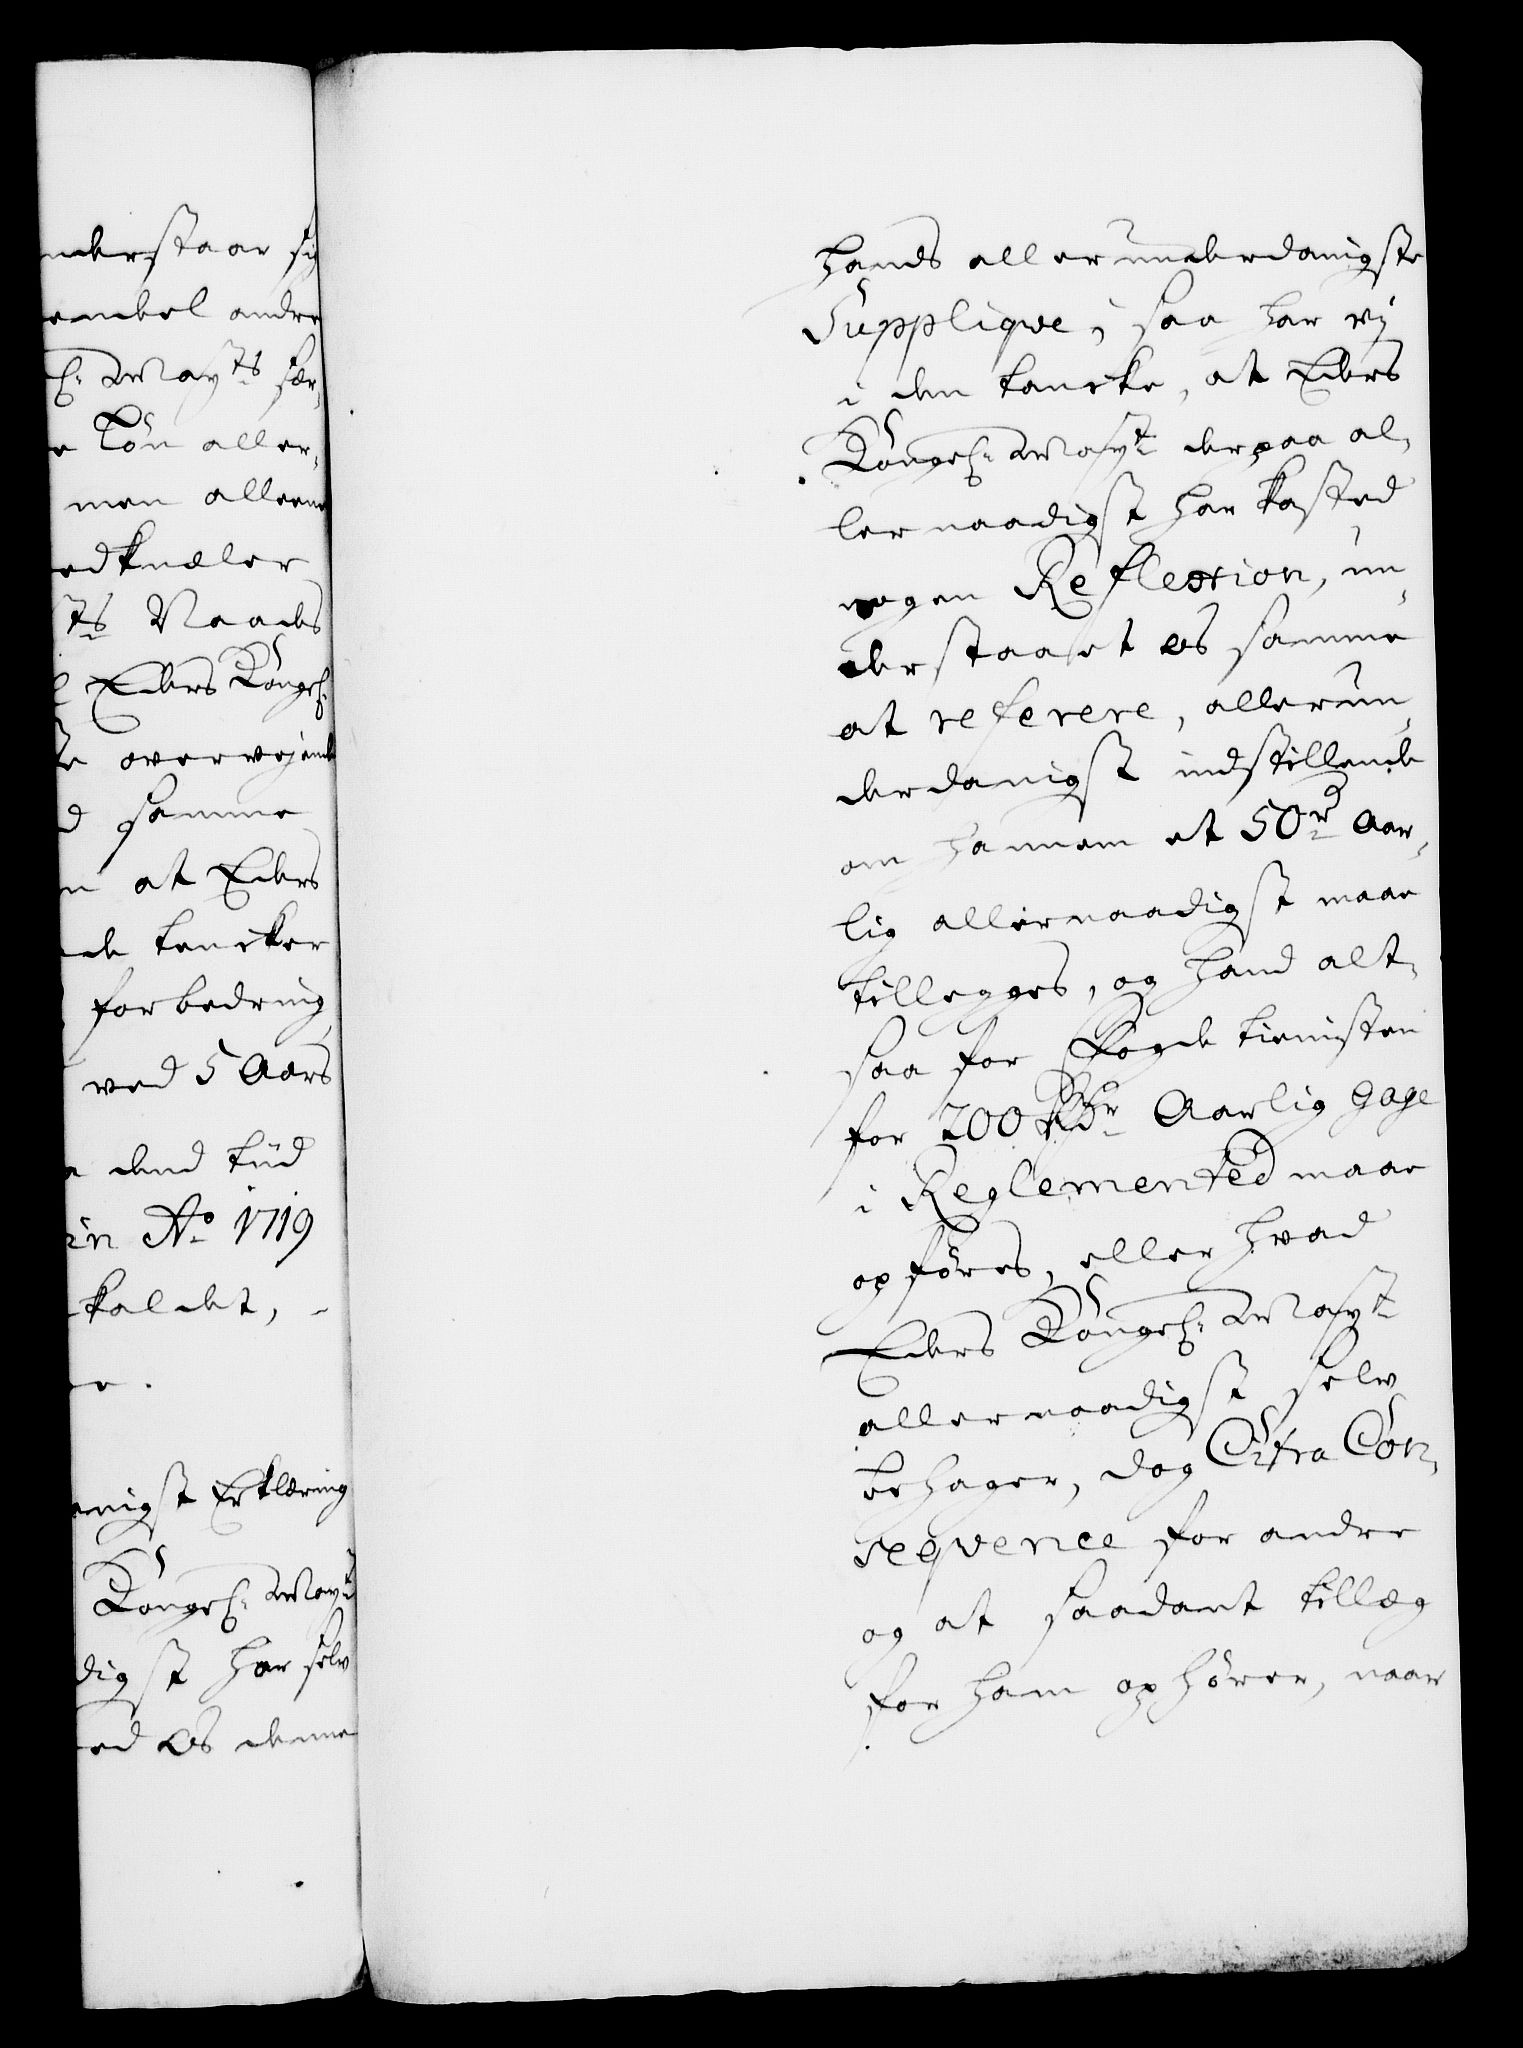 nderstaar sig
embel andre
l: Mayts ser,
e Løn aller,
men alleene
edknæler
ts Naades
l Eders Kongel:
te overvejende
d samme
n at Eders
de tencker
forbedring
ved 5 Aars
a dend tiid
in Ao 1719
kaldet,
e.
enigst Erklæring
Kongel: Mayt
digst har selv
ed os denne
hands allerunderdanigste
Supplique, saa har vj
i den tancke, at Eders
Kongel: Mayt derpaa al,
lernaadigst har kasted
nogen Reflexion, un,
derstaaet os samme
at referere, allerun,
derdanigst indstillende
om hannem et 50 rd Aar,
lig allernaadigst maae
tillegges, og hand alt,
saa for Fogde tienisten
for 200 Rdr Aarlig gage
i Reglemented maae
opføres, eller hvad
Eders Kongel: Mayt
allernaadigst selv
behager, dog Citra Con,
seqvence for andre
og at saadant tillæg
for ham ophører, naar